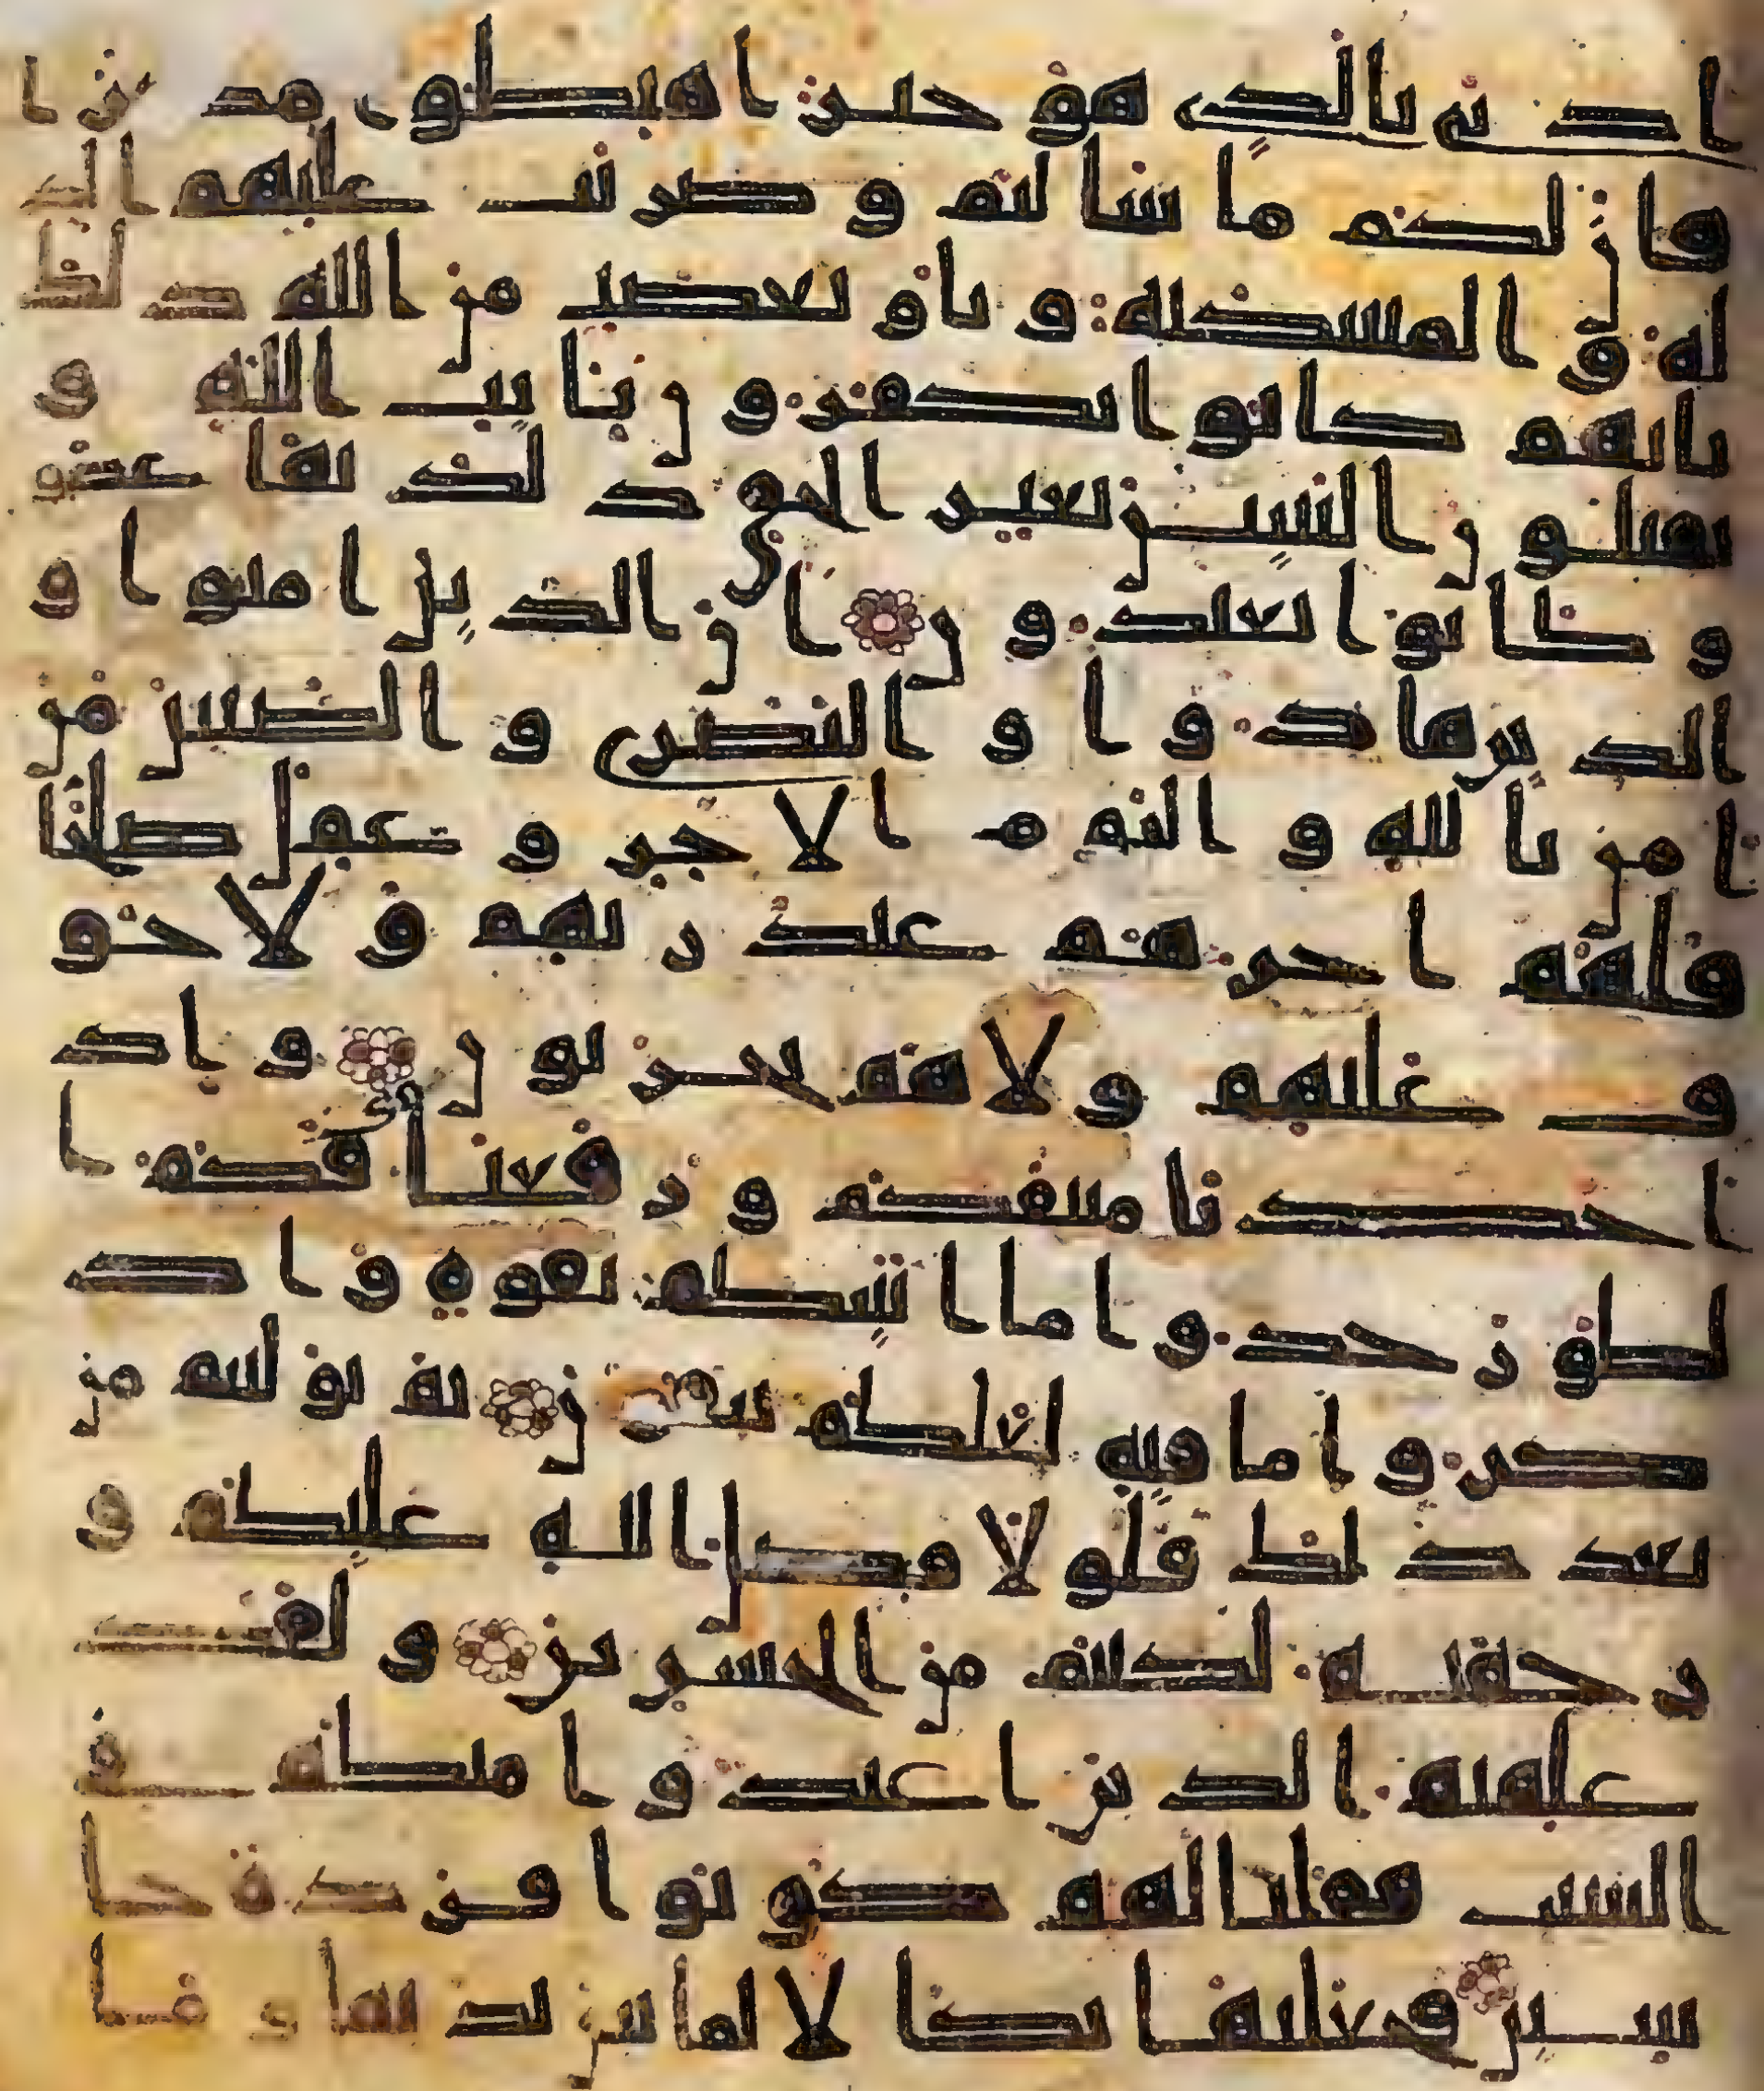 ادنى بالذى هو خير اهبطوا مصرا
فان لكم ما سالتم و ضربت عليهم الذ
لة و المسكنة و باو بغضب من الله ذلك
بانهم كانوا يكفرون بايت الله و
يقتلون النبيين بغير الحق ذلك بما عصو
و كانوا يعتدون ان الذين امنوا و
الذين هادوا و النصرى و الصبين من
امن بالله و اليوم الاخر و عمل صلحا
فلهم اجرهم عند ربهم و لا خو
ف عليهم و لا هم يحزنون و اذ
اخذنا ميثقكم و رفعنا فوقكم ا
لطور خذوا ما اتينكم بقوة و اذ
كروا ما فيه لعلكم تتقون ثم توليتم من
بعد ذلك فلولا فضل الله عليكم و
رحمته لكنتم من الخسرين و لقد
علمتم الذين اعتدوا منكم في
السبت فقلنا لهم كونوا قردة خا
سين فجعلنها نكلا لما بين يديها و ما